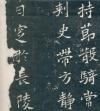 持節散騎常
刺史帶方靜
日窆於長陵